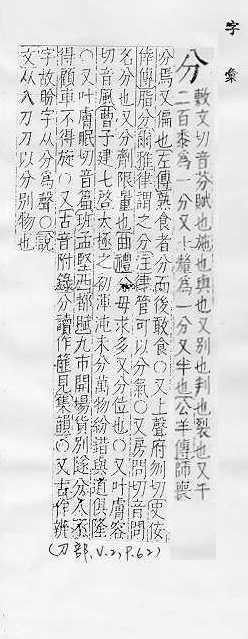 字彙
分
敷文切音芬賦也施也與也又別也判也裂也又千
二百黍為一分又十釐為一分又半也公羊傳師喪
分焉又徧也左傳熟食者分而後敢食○又上聲府刎切
傳脂分爾雅律謂之分注律管可以分氣○又房問切音問
名分也又分劑限量也曲禮分毋求多又分位也○又叶膚容
切音風曹子建七啓太極之初渾沌未分萬物紛錯與道俱隆
○又叶膚眠切音 班 西都賦九市開場貨別隧分人不
得顧車不得旋○又古音附錄分讀作 見集韻○又古作辨
字故盼字从分為聲○說
文从八刀刀以分別物也
(刀部, V.2, P.62)